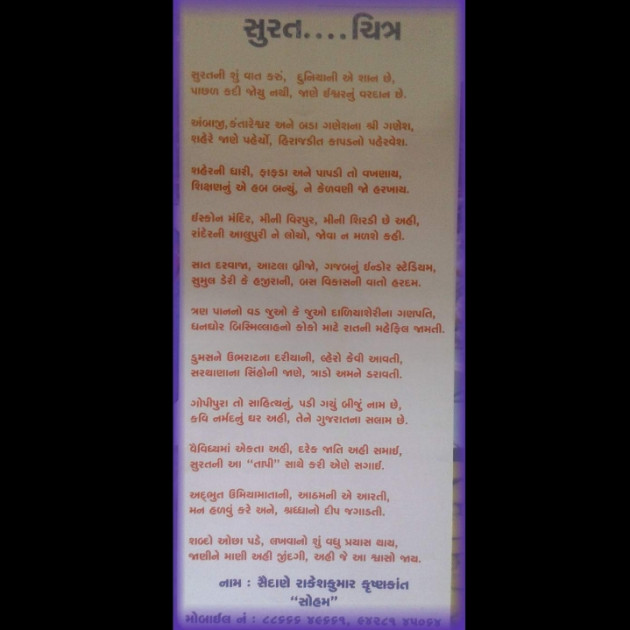 સુરત....ચિત્ર
સુરતની શું વાત કરું, દુનિયાની એ શાન છે,
પાછળ કદી જોયુ નથી, જાણે ઈશ્વરનું વરદાન છે.
અંબાજી, કંતારેશ્વર અને બડા ગણેશના શ્રી ગણેશ,
શહેરે જાણે પહેર્યો, હિરાજડીત કાપડનો પહેરવેશ.
શહેરની ઘારી, ફાફડા અને પાપડી તો વખણાય,
શિક્ષણનું એ હબ બન્યું, ને કેળવણી જો હરખાય.
ઈસ્કોન મંદિર, મીની વિરપુર, મીની શિરડી છે અહી,
રાંદેરની આલુપુરી ને લોચો, જોવા ન મળશે કહી.
સાત દરવાજા, આટલા બ્રીજો, ગજબનું ઈન્ડોર સ્ટેડિયમ,
સુમુલ ડેરી કે હજીરાની, બસ વિકાસની વાતો હરદમ.
ત્રણ પાનનો વડ જુઓ કે જુઓ દાળિયાશેરીના ગણપતિ,
ઘનઘોર બિસ્મિલ્લાહનો કોકો માટે રાતની મહેફિલ જામતી.
ડુમસને ઉભરાટના દરીયાની, લ્હેરો કેવી આવતી,
સરથાણાના સિંહોની જાણે, ત્રાડો અમને ડરાવતી.
ગોપીપુરા તો સાહિત્યનું, પડી ગયું બીજું નામ છે,
કવિ નર્મદનું ઘર અહી, તેને ગુજરાતના સલામ છે.
વૈવિધ્યમાં એકતા અહી, દરેક જાતિ અહી સમાઈ,
સુરતની આ "તાપી" સાથે કરી એણે સગાઈ.
અદ્ભુત ઉમિયામાતાની, આઠમની એ આરતી,
મન હળવું કરે અને, શ્રધ્ધાનો દીપ જગાડતી.
શબ્દો ઓછા પડે, લખવાનો શું વધુ પ્રયાસ થાય,
જાણીને માણી અહી જીંદગી, અહી જે આ શ્વાસો જાય.
નામ : સૈદાણે રાકેશકુમાર કૃષ્ણકાંત
"સોહમ"
મોબાઈલ નં :